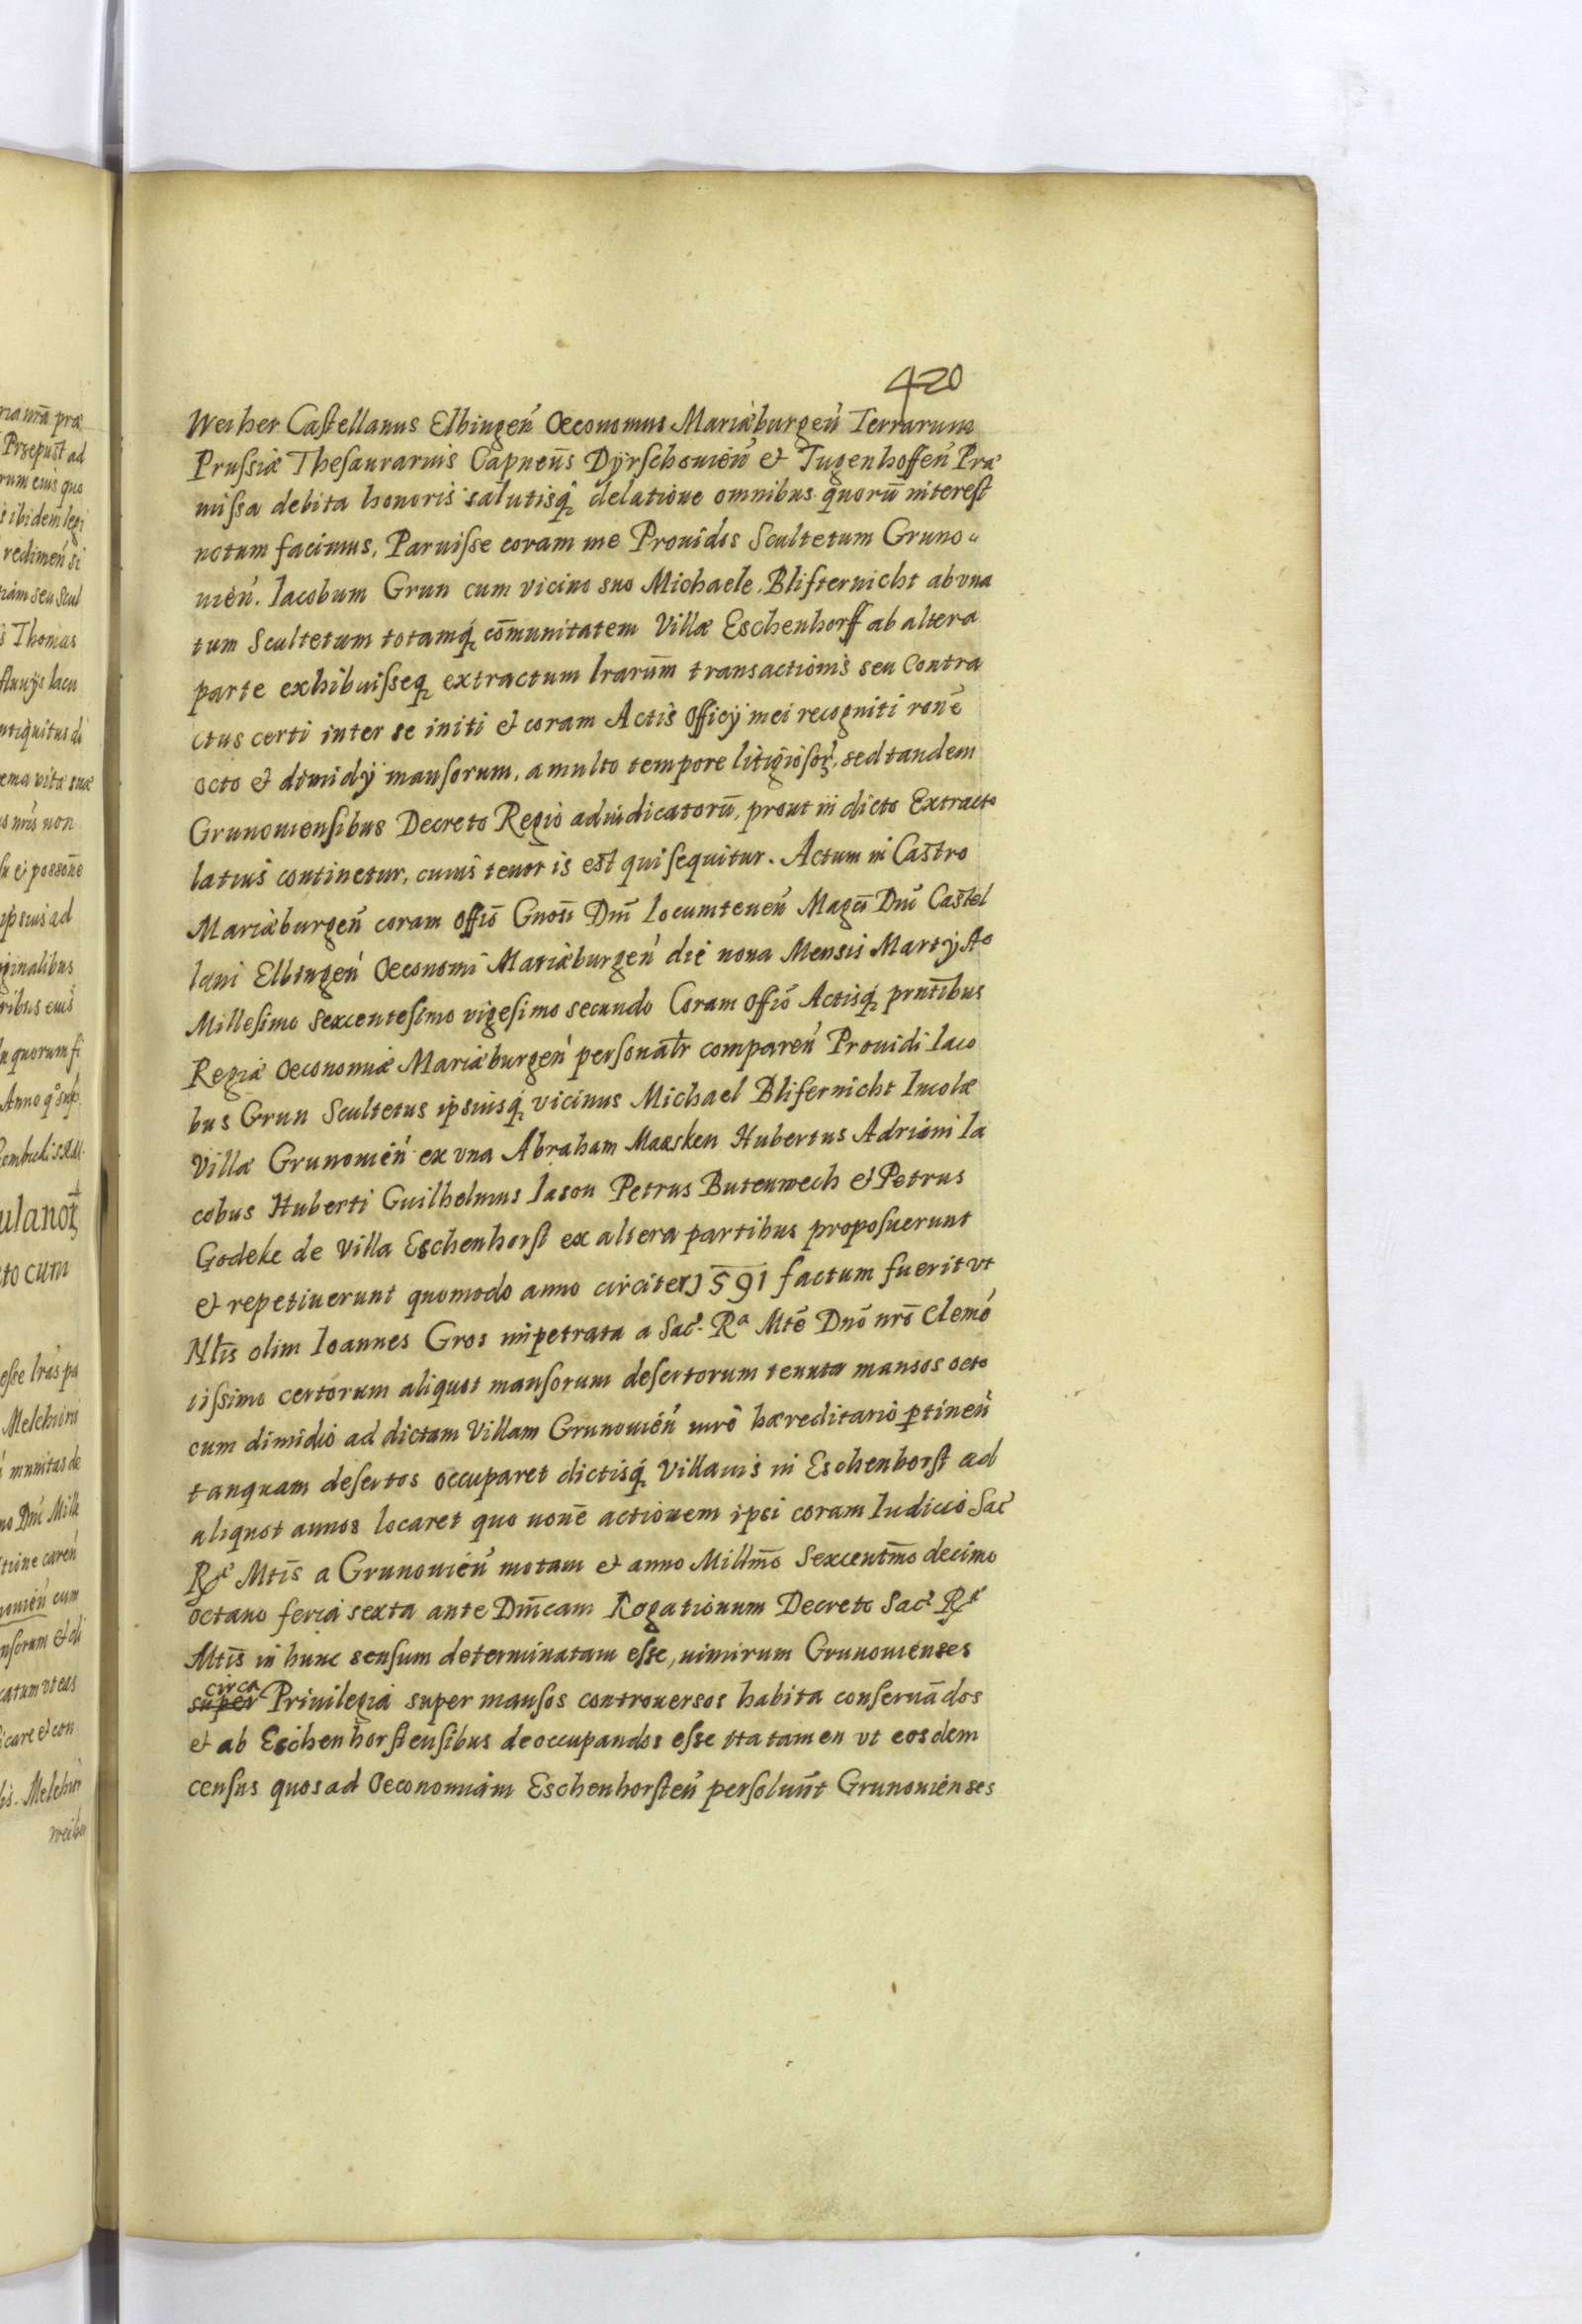 420
Weiher Castellanus Elbingeń Oeconomus Mariæburgeń Terrarum
Prussiæ Thesaurarius Capneñs Dÿrschouień et Tugenhoffeń Præ
missa debita honoris salutisq̃ delatione omnibus quorū interest
notum facimus, Paruisse coram me Prouidos Scultetum Gruno-
uień. Iacobum Grun cum vicino suo Michaele Blifternicht ab vna
tum Scultetum totamq̃ cōmunitatem Villæ Eschenhorff ab altera
parte exhibuisseq̃ extractum lrarum̄ transactionis seu Contra
ctus certi inter se initi et coram Actis Officÿ mei recogniti ronē
octo et dimidÿ mansorum, a multo tempore litigiosoꝝ, sed tandem
Grunouiensibus Decreto Regio adiudicatorū, prout in dicto Extracto
latius continetur, cuius tenor is est qui sequitur. Actum in Castro
Mariæburgeń coram offiō Gnosi Dnī locumteneń Magci Dnī Castel
lani Elbingeń Oeconomi Mariæburgeń die nona Mensis Martÿ Ao
Millesimo Sexcentesimo vigesimo secundo Coram offiō Actisq̃ prntībus
Regiæ Oeconomiæ Mariæburgeń personalr̄ compareń Prouidi Iaco
bus Grun Scultetus ipsiusq̃ vicinus Michael Blifernicht Incolæ
Villæ Grunouień ex vna Abraham Maasken Hubertus Adriani Ia
cobus Huberti Guilhelmus Iason Petrus Butenwech et Petrus
Godeke de Villa Eschenhorst ex altera partibus proposuerunt
et repetiuerunt quomodo anno circiter 1591 factum fuerit vt
Nl̄is olim Ioannes Gros impetrata a Sac. Ra Mtē Dnō nrō Clemé
tissimo certorum aliquot mansorum desertorum tenuta mansos octo
cum dimidio ad dictam Villam Grunouień iurē hæreditario ꝑtineń
tanquam desertos occuparet dictisq̃ Villanis in Eschenhorst ad
aliquot annos locaret quo nonē actionem ipsi coram Iudicio Sac
Ræ Mtīs a Grunouień motam et anno Millmō Sexcentmō decimo
octauo feria sexta ante Dnīcam Rogationum Decreto Sac. Ræ
Mtīs in hunc sensum determinatam esse, nimirum Grunouienses
circa
super Priuilegia super mansos controuersos habita conseruādos
et ab Eschenhorstensibus deoccupandos esse ita tamen vt eosdem
census quos ad Oeconomiam Eschenhorsteń persoluūt Grunouienses